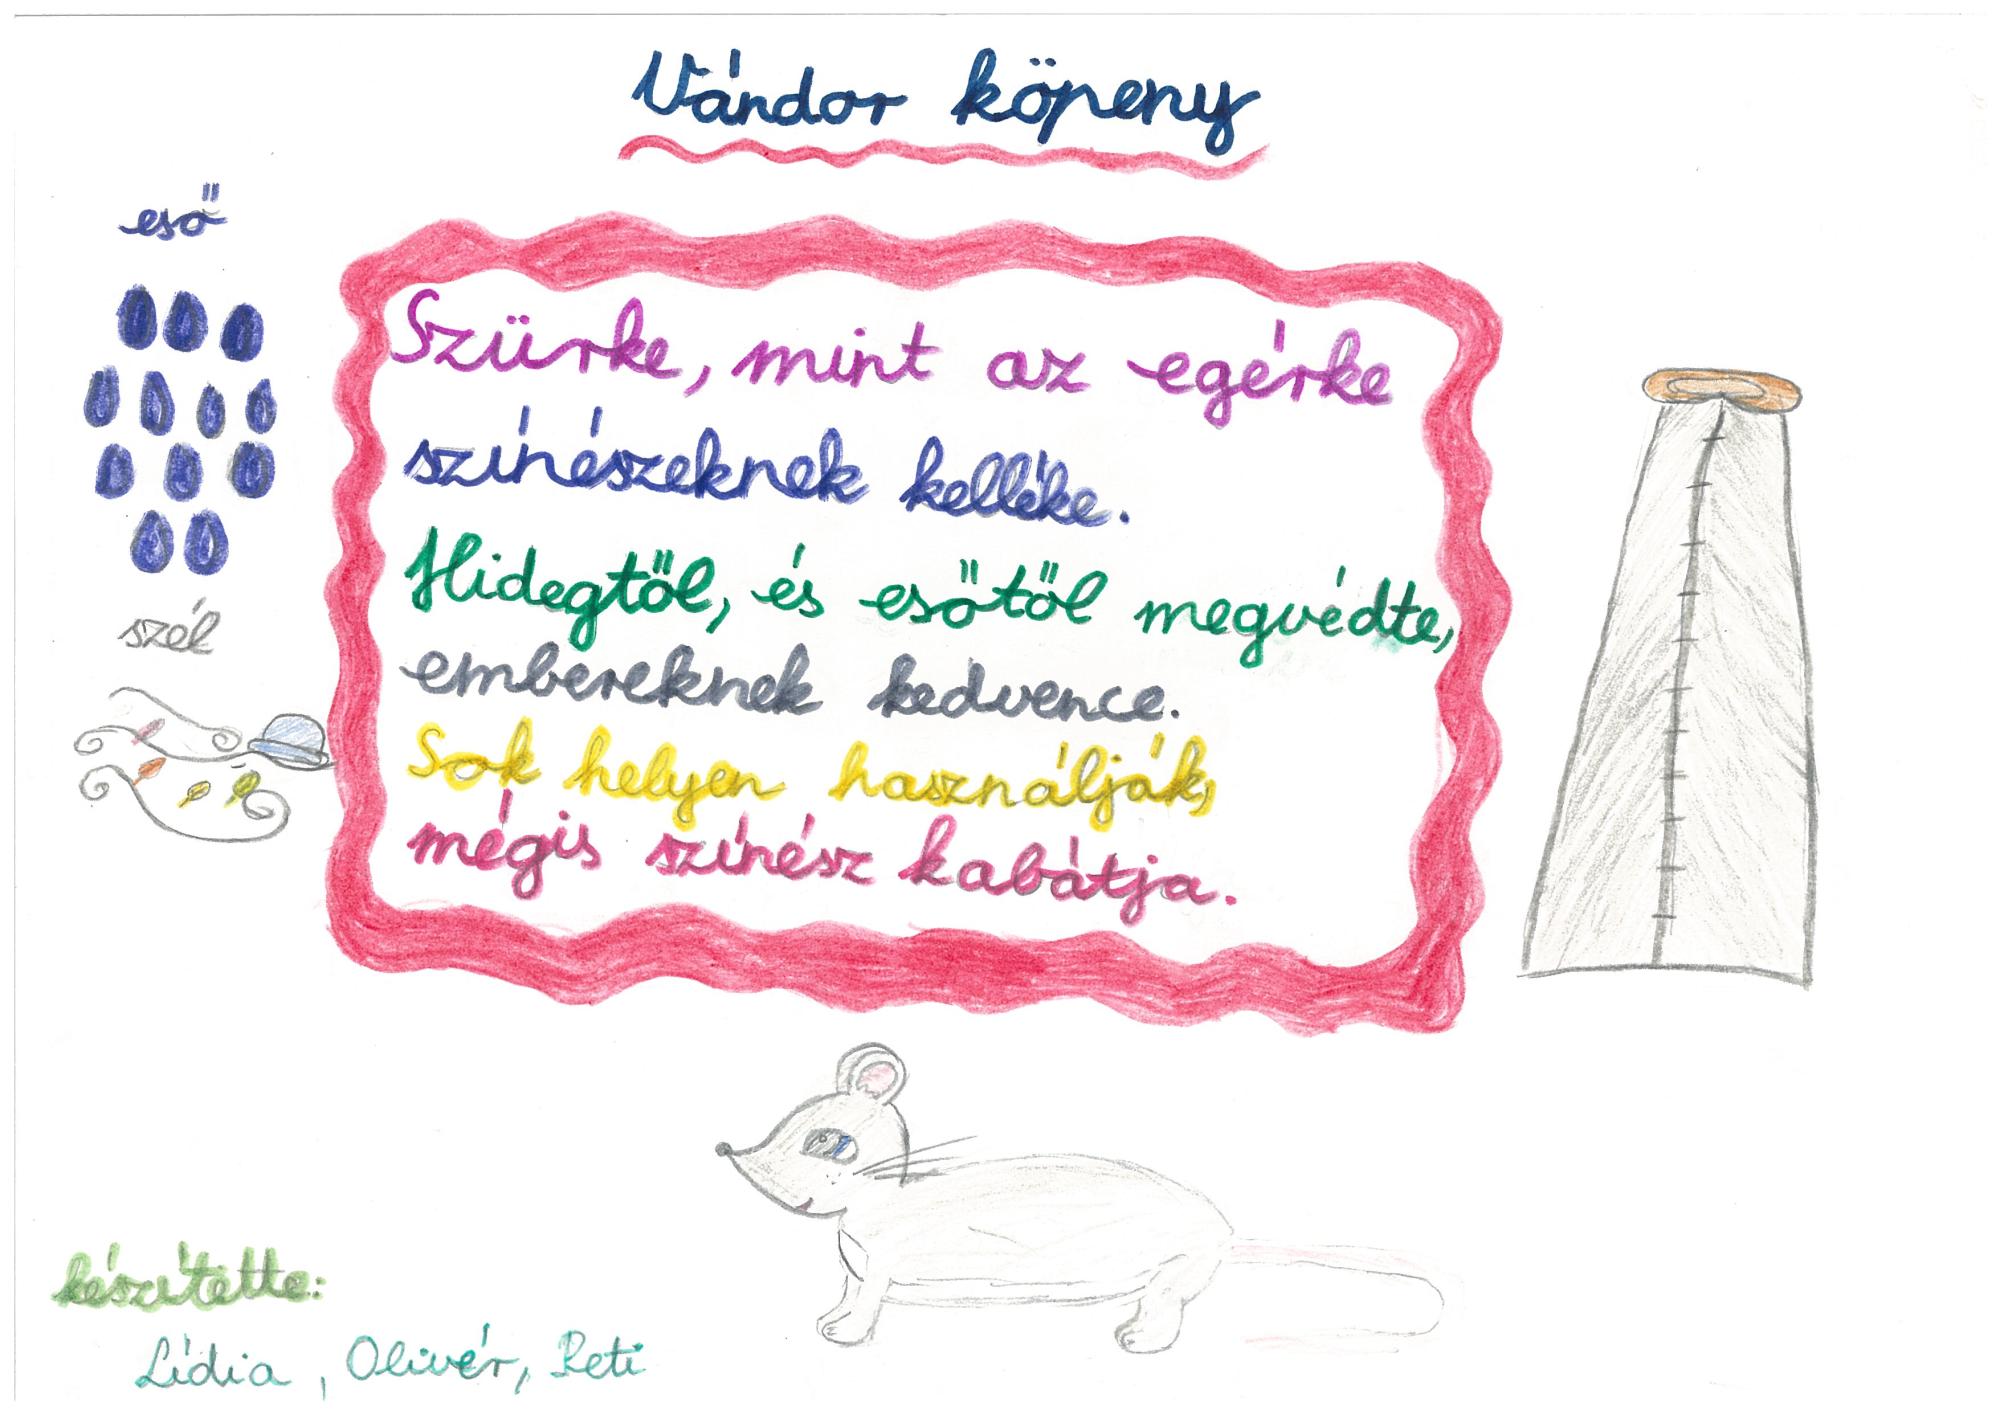 Vándor köpeny
eső
Szürke, mint az egérke
színészeknek kelléke.
Hidegtől, és esőtől megvédte,
szél
embereknek kedvence.
Sok helyen használják,
mégis színész kabátja.
készítette:
Lídia, Olivér, Reti